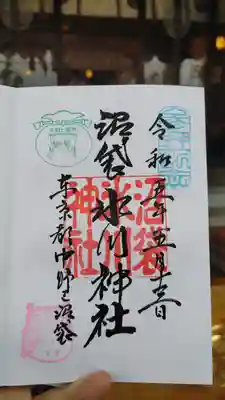 令和五年五月十三日
沼袋氷川神社
沼袋
氷川
神社
東京都中野区沼袋